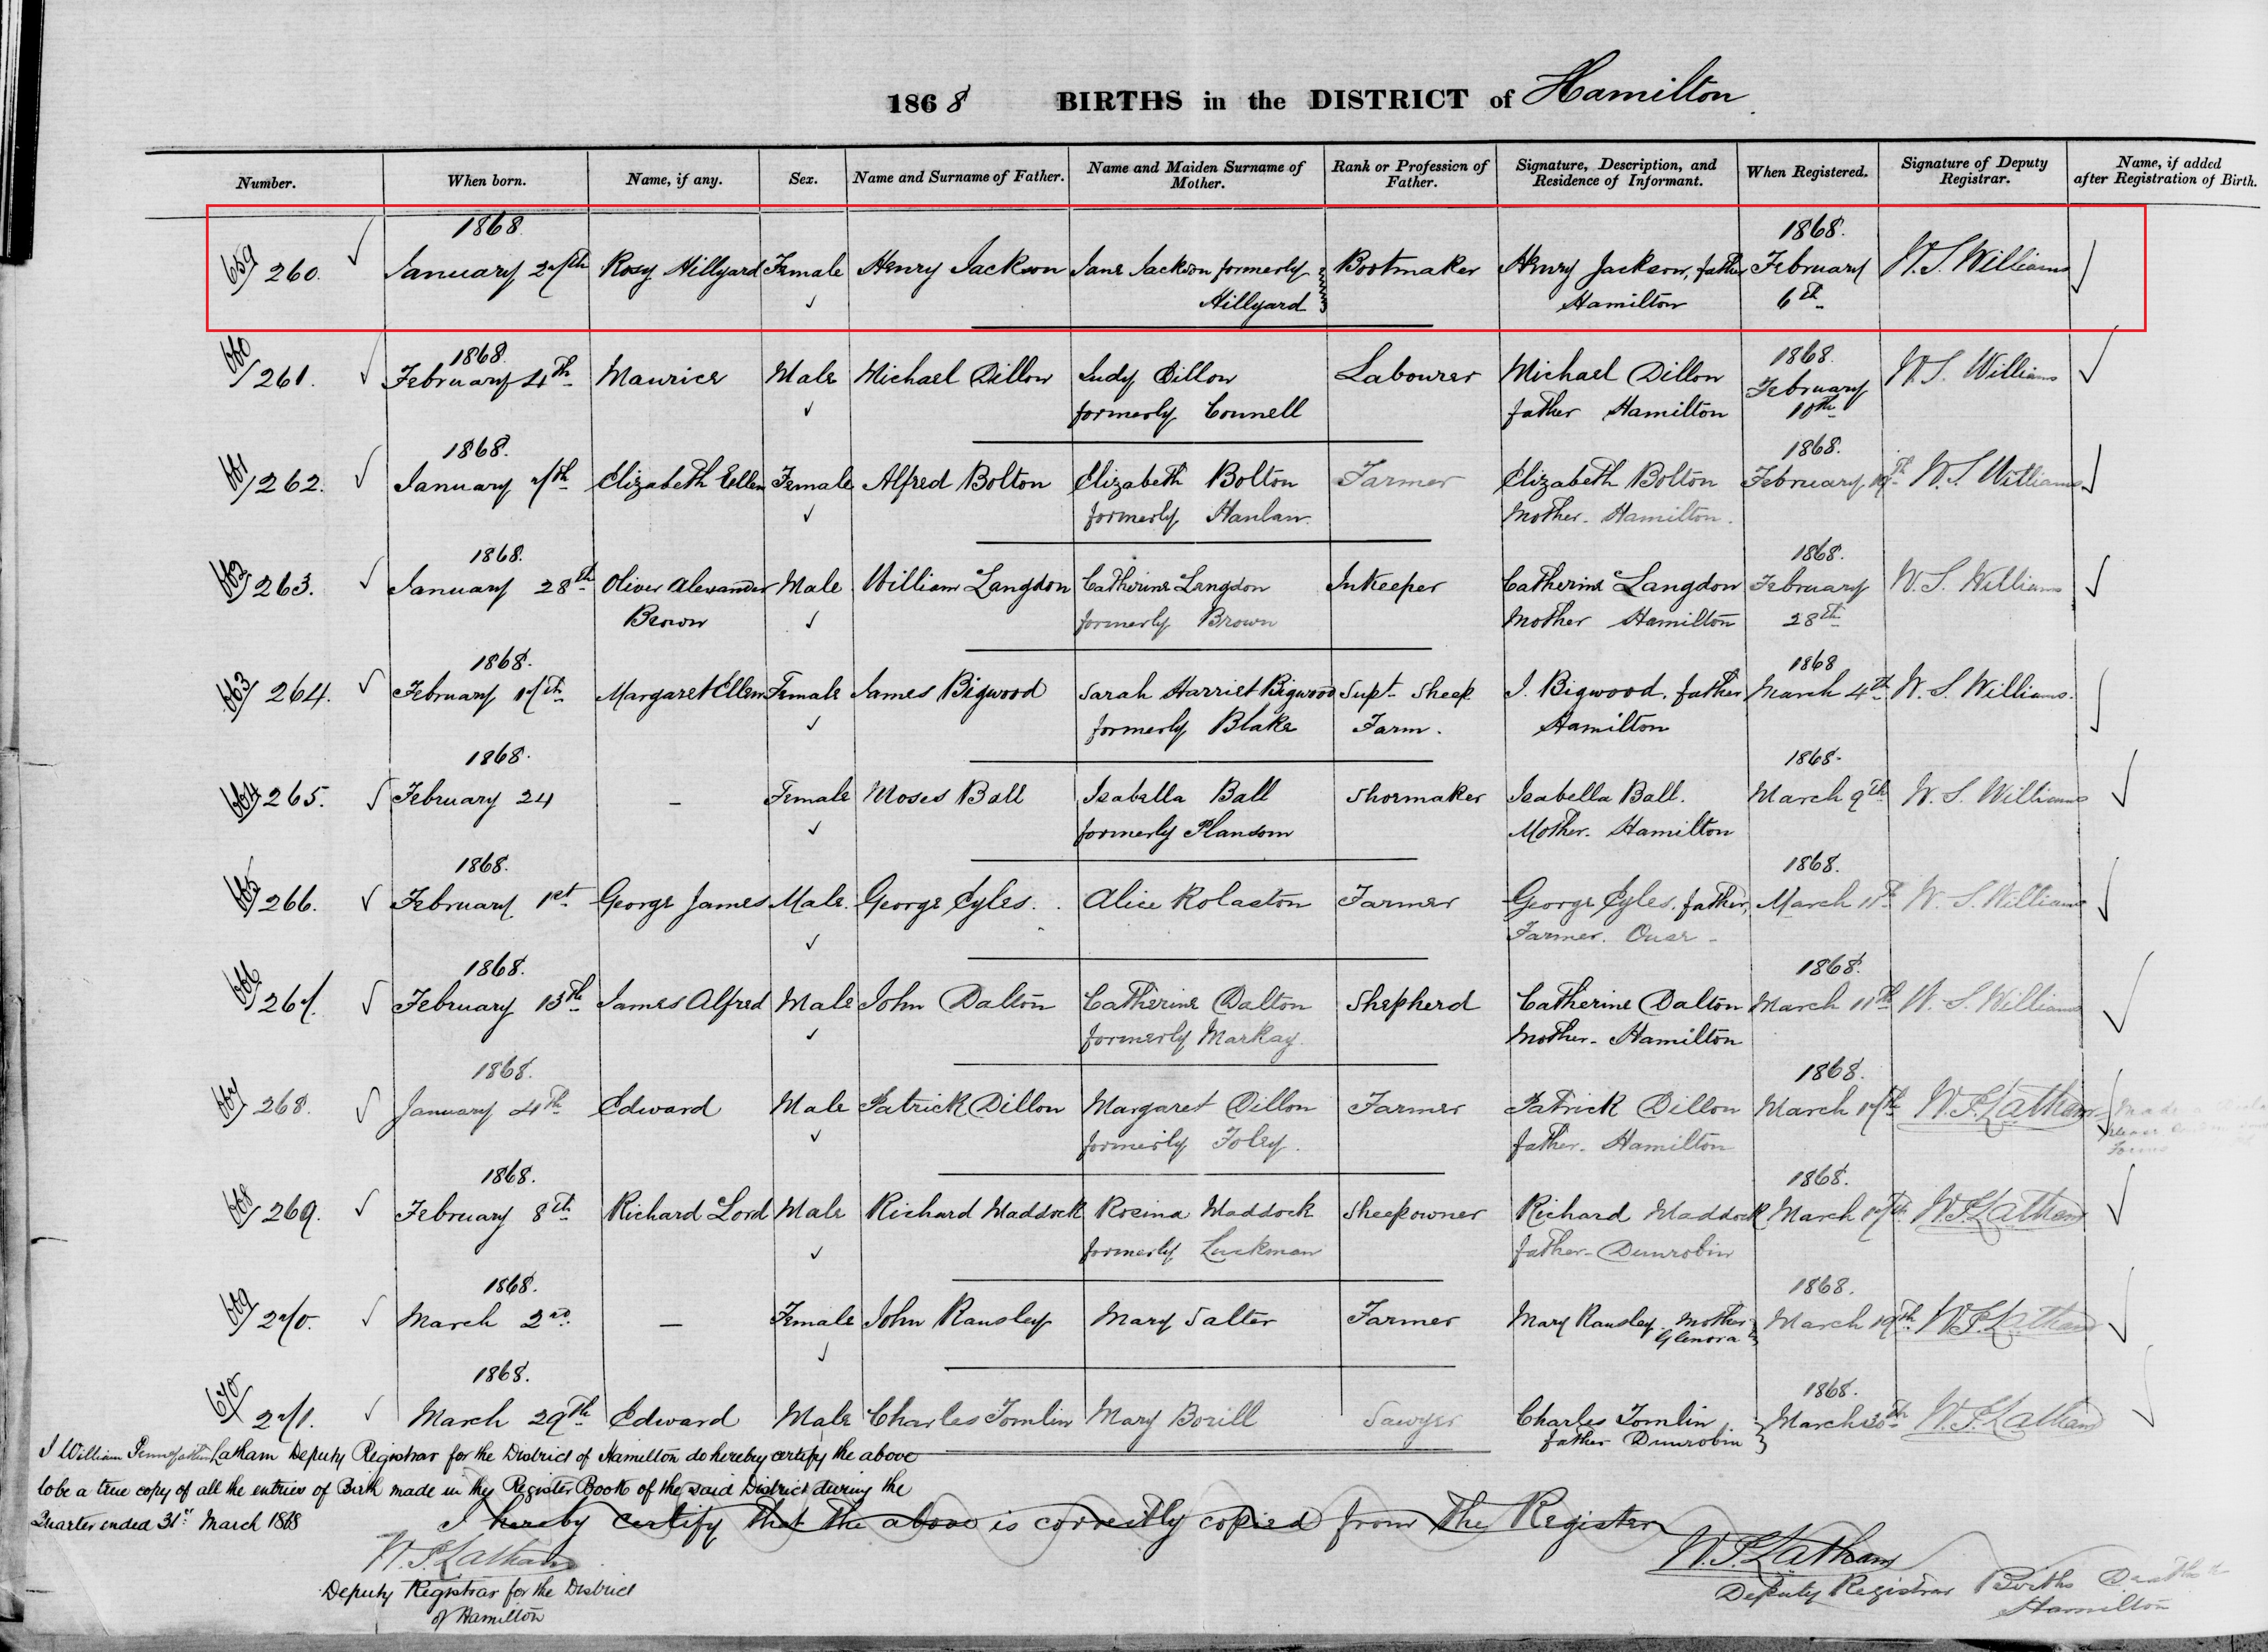 1868 BIRTHS in the DISTRICT of Hamilton
Number. When born. Name, if any. Sex. Name and Surname of Father. Name and Maiden Surname of Mother. Rank or Profession of Father. Signature, Description, and Residence of Informant. When Registered. Signature of Deputy Registrar. Name, if added after Registration of Birth.
1868 1868.
659/ 260. January 27th Rosy Hillyard Female Henry Jackson Jane Jackson formerly Bootmaker Henry Jackson, father February W. S. Williams
Hillyard Hamilton 6th
1868. 1868.
660/ 261. February 4th Maurice Male Michael Dillon Judy Dillon Labourer Michael Dillon February W. S. Williams
formerly Connell father Hamilton 10th
1868. 1868.
661/ 262. January 7th Elizabeth Ellen Female Alfred Bolton Elizabeth Bolton Farmer Elizabeth Bolton February 19th W. S. Williams
formerly Hanlan. Mother. Hamilton.
1868. 1868.
662/ 263. January 28th Oliver Alexander Male William Langdon Catherine Langdon Inkeeper Catherine Langdon February W. S. Williams
Brown formerly Brown Mother Hamilton 28th
1868. 1868
663/ 264. February 17th Margaret Ellen Female James Bigwood Sarah Harriet Bigwood Supt. Sheep J. Bigwood, father March 4th W. S. Williams.
formerly Blake Farm. Hamilton
1868. 1868.
664/ 265. February 24 — Female Moses Ball Isabella Ball Shoemaker Isabella Ball. March 9th W. S. Williams
formerly Mother. Hamilton
1868. 1868.
665/ 266. February 1st George James Male. George Eyles. Alice Rolaston Farmer George Eyles. father, March 11th W. S. Williams
Farmer. Ouse -
1868. 1868.
666/ 267. February 13th James Alfred Male John Dalton Catherine Dalton Shepherd Catherine Dalton March 11th W. S. Williams
formerly Markay. Mother - Hamilton
1868. 1868.
667/ 268. January 4th Edward Male Patrick Dillon Margaret Dillon Farmer Patrick Dillon March 17th W. P. Latham
formerly Foley. father - Hamilton
1868. 1868.
668/ 269. February 8th Richard Lord Male Richard Maddock Rosina Maddock Sheepowner Richard Maddock March 17th W. P. Latham
formerly Luckman father - Dunrobin
1868. 1868.
669/ 270. March 2nd — Female John Ransley Mary Salter Farmer Mary Ransley Mother March 19th W. P. Latham
Glenora
1868. 1868.
670/ 271. March 29th Edward Male Charles Tomlin Mary Borill Sawyer Charles Tomlin March 30th W. P. Latham
father Dunrobin
I William Latham Deputy Registrar for the District of Hamilton do hereby certify the above
to be a true copy of all the entries of Birth made in the Register Book of the said District during the
Quarter ended 31st March 1868
I hereby certify that the above is correctly copied from the Register
W. P. Latham
Deputy Registrar for the District
of Hamilton
W. P. Latham
Deputy Registrar Births Deaths
Hamilton